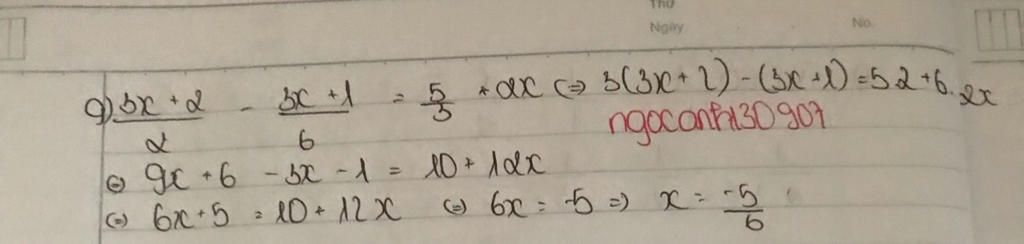 Thứ
Ngày No.
g) 3x+2/2 - 3x+1/6 = 5/3 + 2x (=) 3(3x+2)-(3x+1)=5.2+6.2x
ngocanh130907
(=) 9x+6 -3x-1 = 10+12x
(=) 6x+5 = 10+12x (=) 6x = -5 =) x = -5/6